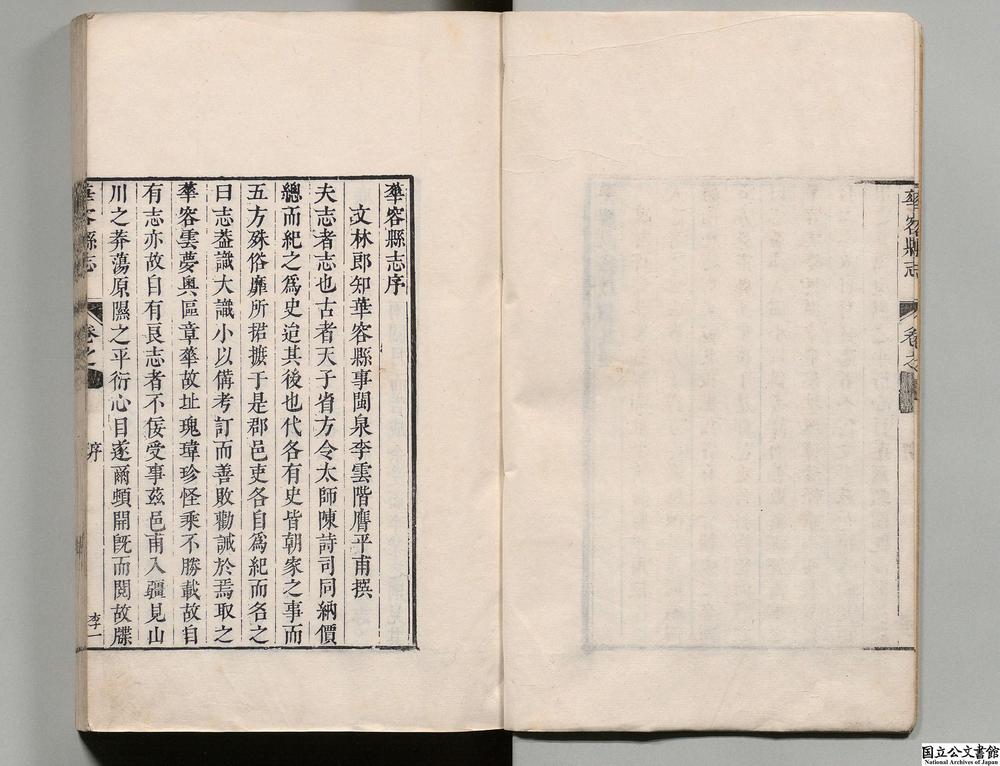 華容縣志
卷之
華容縣志序
文林郎知華容縣事閩泉李雲階膺平甫撰
夫志者志也古者天子省方令太師陳詩司同納價
總而紀之爲史迨其後也代各有史皆朝家之事而
五方殊俗靡所捃摭于是郡邑吏各自爲紀而名之
曰志葢識大識小以備考訂而善敗勸誡於焉取之
華容雲夢奧區章華故址瑰瑋珍怪乘不勝載故自
有志亦故自有良志者不佞受事茲邑甫入疆見山
川之莽蕩原隰之平衍心目遂爾頓開旣而閱故牒
華容縣志
卷之
序
李一
国立公文書館
National Archives of Japan